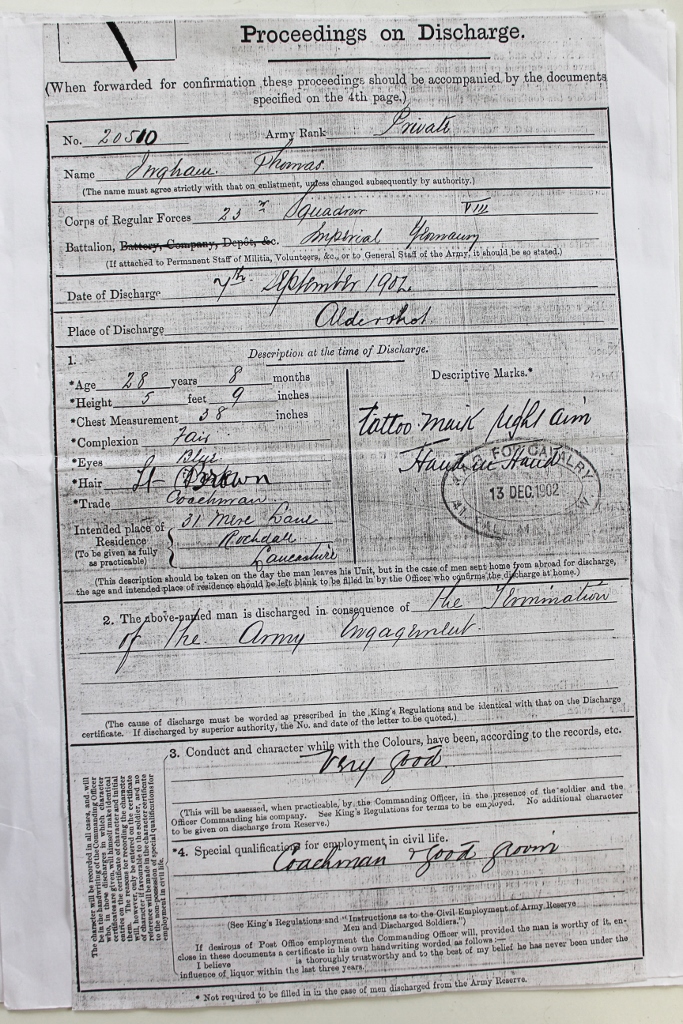 Proceedings on Discharge.
(When forwarded for confirmation these proceedings should be accompanied by the documents
specified on the 4th page.)
No. 20510 Army Rank Private
Name Ingham Thomas
(The name must agree strictly with that on enlistment, unless changed subsequently by authority.)
Corps of Regular Forces 23rd Squadron VIII
Battalion, Battery, Company, Depôt, &c. Imperial Yeomanry
(If attached to Permanent Staff of Militia, Volunteers, &c., or to General Staff of the Army, it should be so stated.)
Date of Discharge 7th September 1902
Place of Discharge Aldershot
1. Description at the time of Discharge.
*Age 28 years 8 months
*Height 5 feet 9 inches
*Chest Measurement 38 inches
*Complexion Fair
*Eyes Blue
*Hair Lt Brown
*Trade Coachman
Intended place of
Residence
(To be given as fully
as practicable)
31 Mere Lane
Rochdale
Lancashire
Descriptive Marks.*
Tattoo mark right arm
Hand in Hand
FOR CAVALRY
13 DEC. 1902
(This description should be taken on the day the man leaves his Unit, but in the case of men sent home from abroad for discharge,
the age and intended place of residence should be left blank to be filled in by the Officer who confirms the discharge at home.)
2. The above-named man is discharged in consequence of the Termination
of the Army Engagement.
(The cause of discharge must be worded as prescribed in the King's Regulations and be identical with that on the Discharge
certificate. If discharged by superior authority, the No. and date of the letter to be quoted.)
3. Conduct and character while with the Colours, have been, according to the records, etc.
Very good
(This will be assessed, when practicable, by the Commanding Officer, in the presence of the soldier and the
Officer Commanding his company. See King's Regulations for terms to be employed. No additional character
to be given on discharge from Reserve.)
*4. Special qualification for employment in civil life.
Coachman & good groom
(See King's Regulations and "Instructions as to the Civil Employment of Army Reserve
Men and Discharged Soldiers.")
If desirous of Post Office employment the Commanding Officer will, provided the man is worthy of it, en-
close in these documents a certificate in his own handwriting worded as follows:—
I believe is thoroughly trustworthy and to the best of my belief he has never been under the
influence of liquor within the last three years.
The character will be recorded in all cases, and will
be in the handwriting of the Commanding Officer
who, in those discharges in which character
certificates are given, will himself make identical
entries on the certificate of character and initial
them. The reasons for recording the character
will, however, only be entered on the certificate
of character if favourable to the soldier, and no
reference will be made in the character certificate
to the non-possession of special qualifications for
employment in civil life.
* Not required to be filled in in the case of men discharged from the Army Reserve.